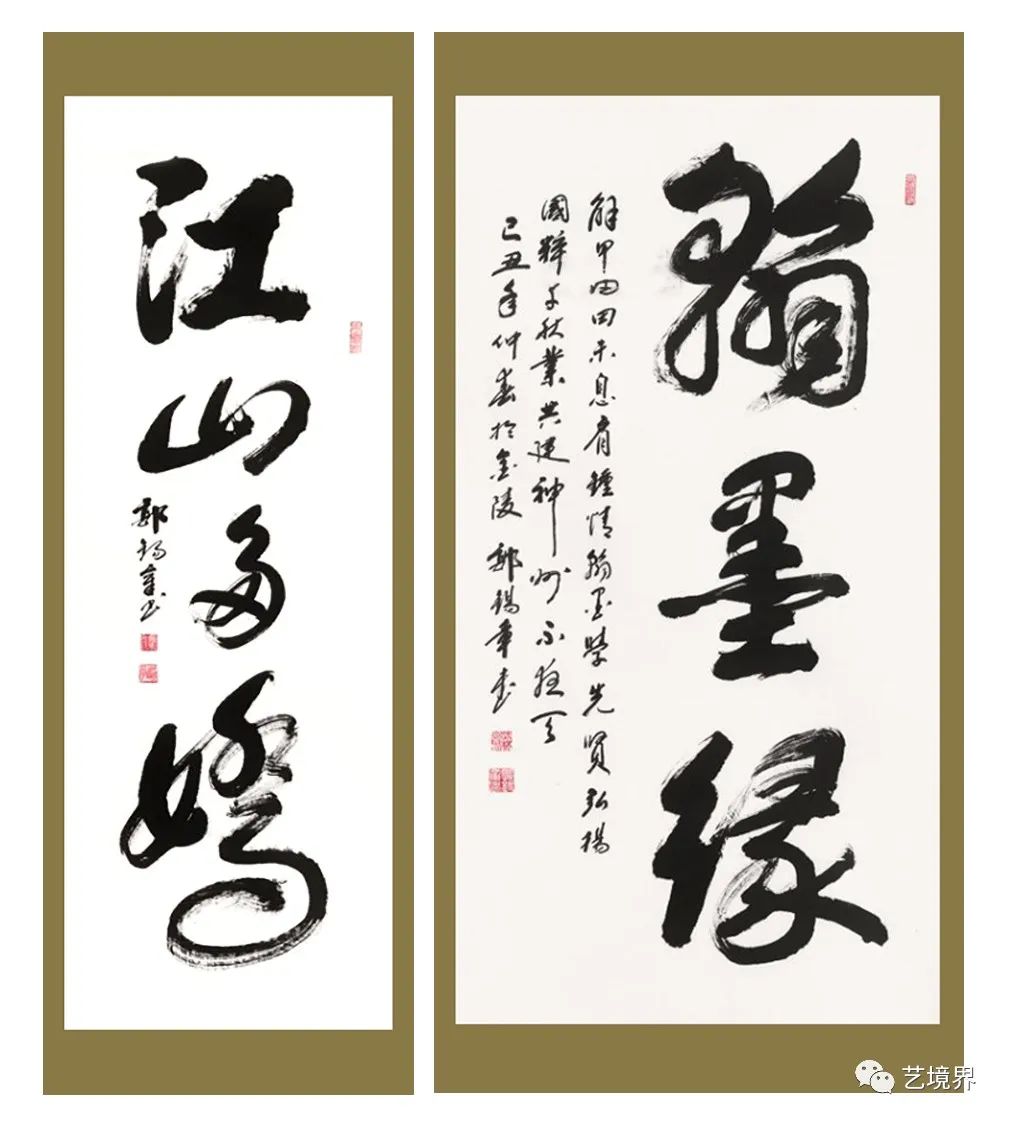 江山多娇
郭锡章书
翰墨缘
解甲归田未息肩钟情翰墨学先贤弘扬
國粹千秋業共建神州不夜天
己丑年仲春於金陵 郭锡章书
艺境界